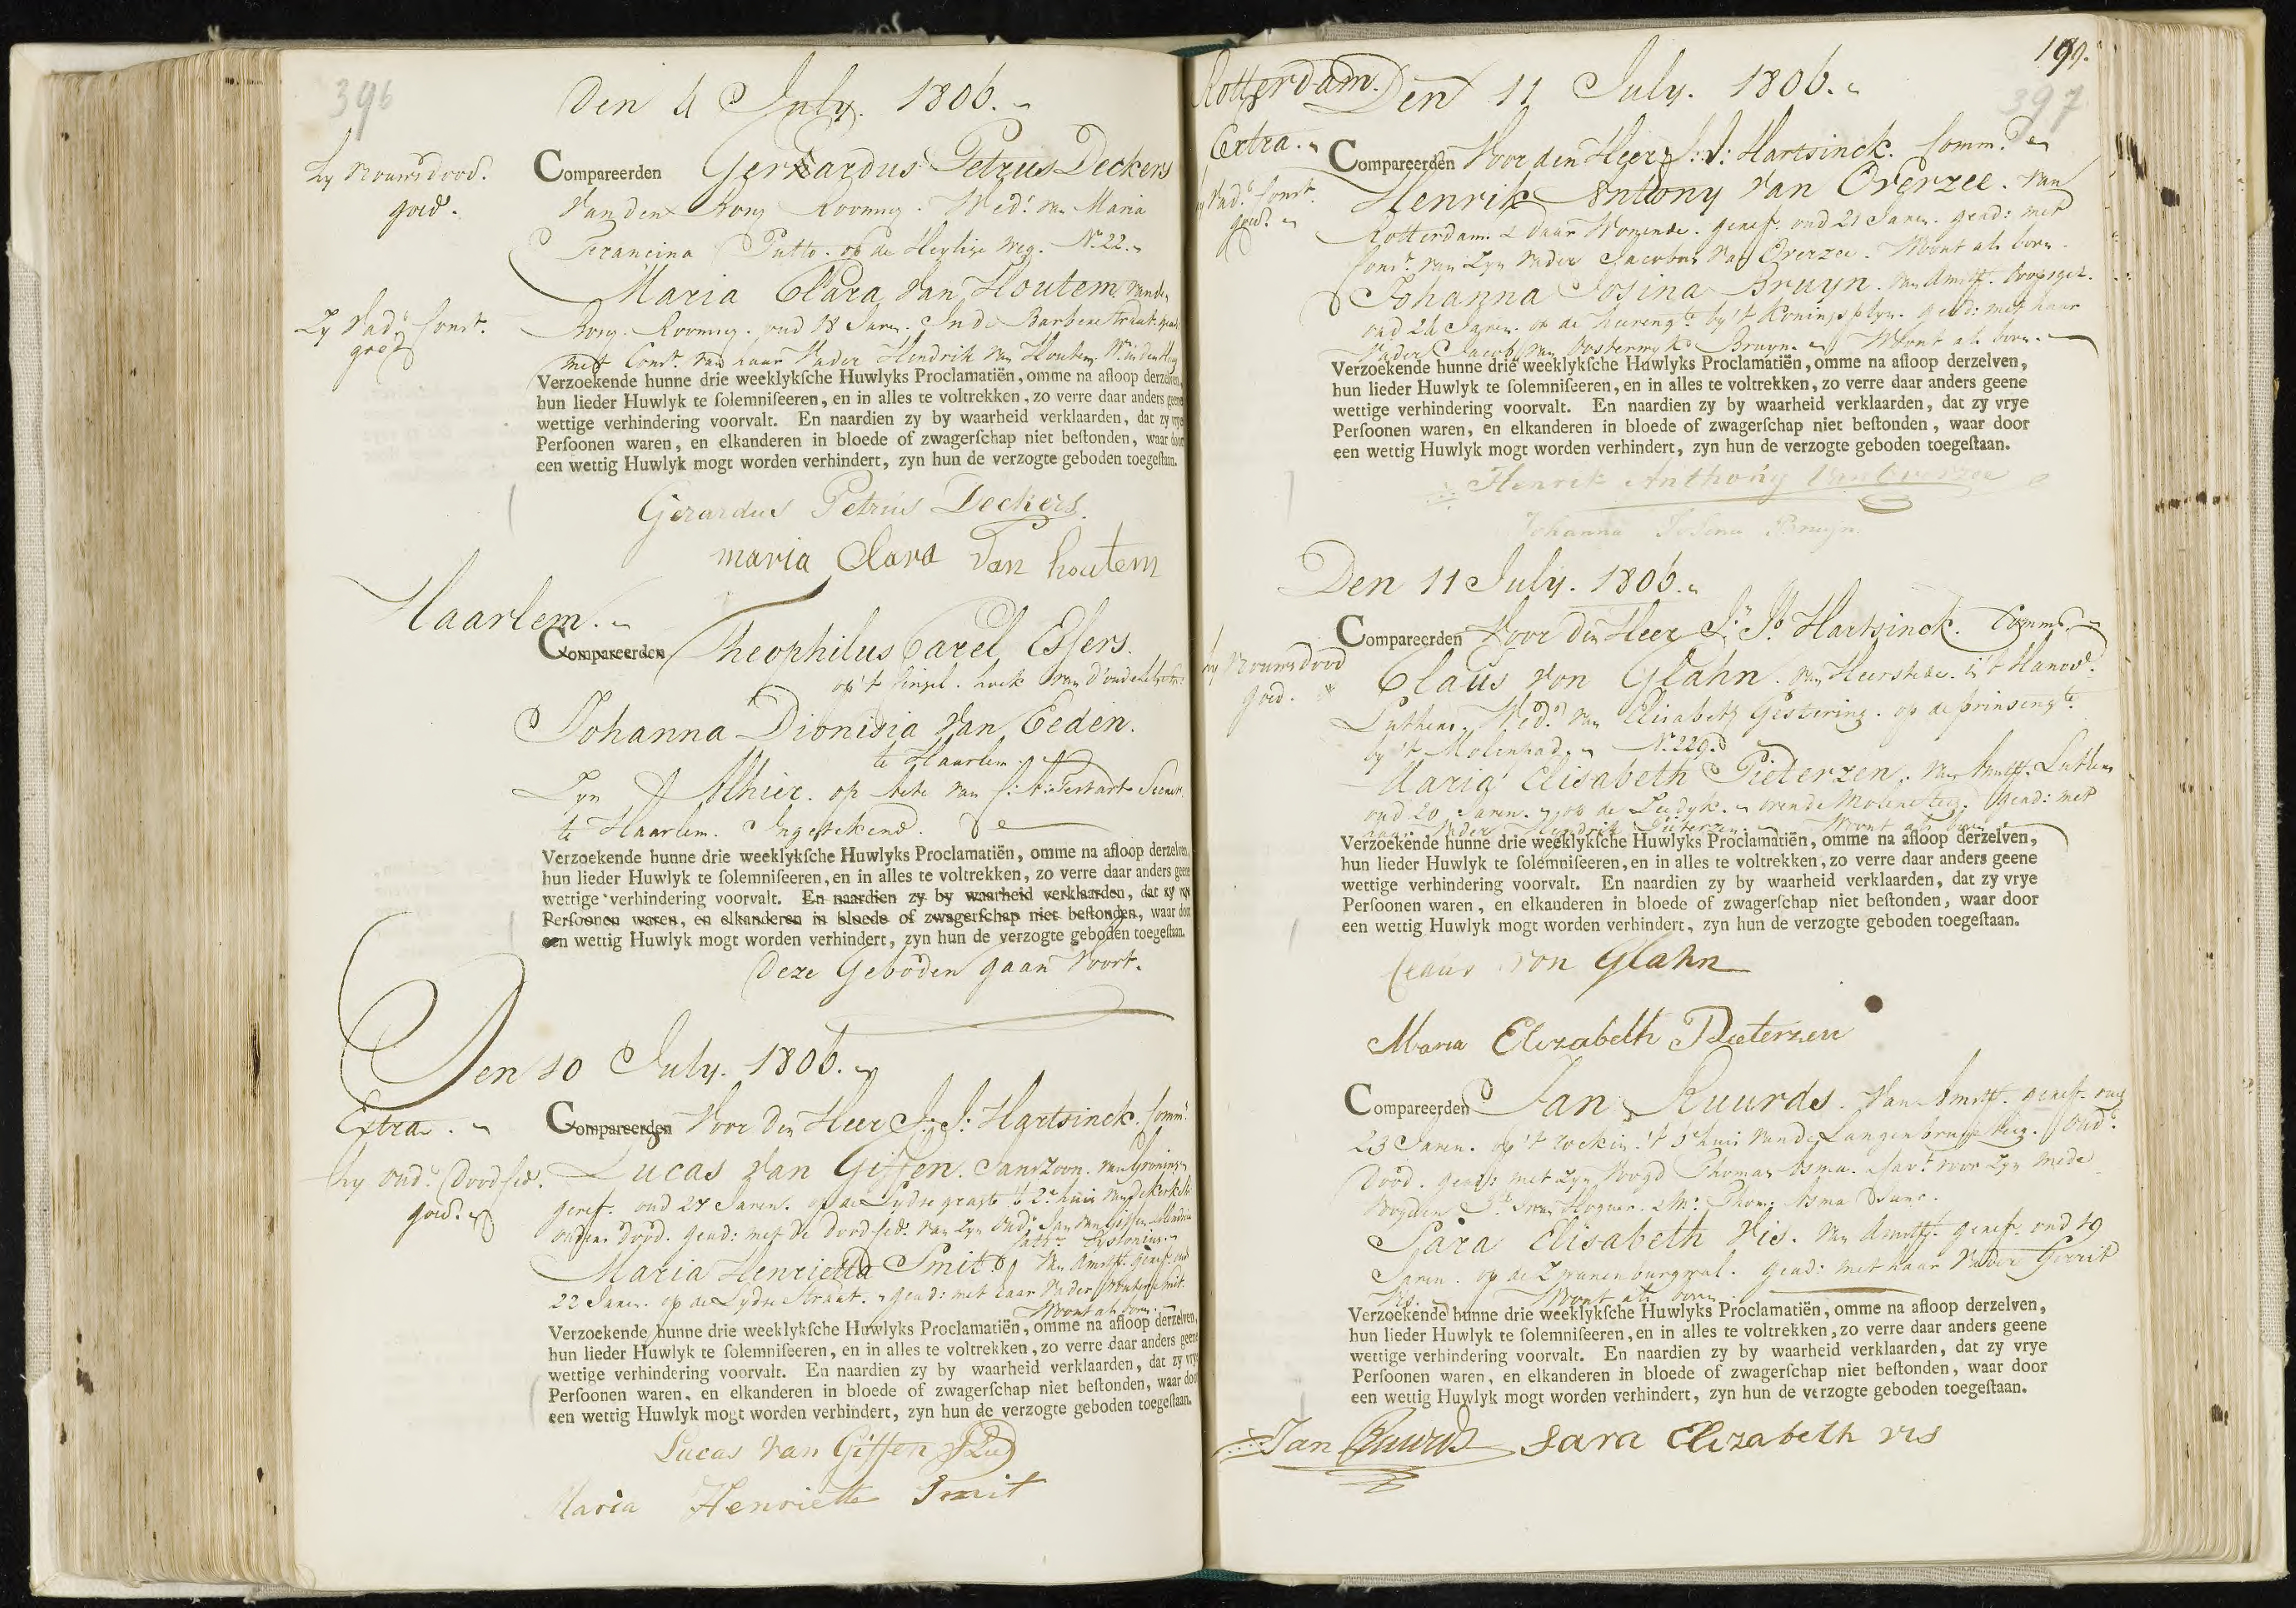 396
Den 4 July. 1806.
hy vrouws dood.
goed.
Compareerden Gerhardus Petrus Deckers
van den Borg Rooms. Wed.r van Maria
Francina Putto. op de Heylige weg. No. 22.
Zy vad.s cons.t
goed
Maria Clara van Houtem. van de
Borg. Rooms. oud 18 Jaren. In de Barberestraat. geads.
met Cons.t van haar Vader Hendrik van Houtem.
Verzoekende hunne drie weeklykſche Huwlyks Proclamatiën, omme na afloop derzelven,
hun lieder Huwlyk te ſolemniſeeren, en in alles te voltrekken, zo verre daar anders geene
wettige verhindering voorvalt. En naardien zy by waarheid verklaarden, dat zy vrye
Perſoonen waren, en elkanderen in bloede of zwagerſchap niet beſtonden, waar door
een wettig Huwlyk mogt worden verhindert, zyn hun de verzogte geboden toegeſtaan.
Gerardus Petrus Deckers.
maria Clara Van houtem
Haarlem.
Compareerden Theophilus Carel Esſers.
op 't Cingel. hoek van d'oude
Johanna Dionisia van Eeden.
te Haarlem.
Zyn Alhier. op Acte van Testart Secret.
te Haarlem. Ingetekend.
Verzoekende hunne drie weeklykſche Huwlyks Proclamatiën, omme na afloop derzelven,
hun lieder Huwlyk te ſolemniſeeren, en in alles te voltrekken, zo verre daar anders geene
wettige verhindering voorvalt. En naardien zy by waarheid verklaarden, dat zy vrye
Perſoonen waren, en elkanderen in bloede of zwagerſchap niet beſtonden, waar door
een wettig Huwlyk mogt worden verhindert, zyn hun de verzogte geboden toegeſtaan.
Deze Geboden gaan voort.
Den 10 July. 1806.
Extra.
Compareerden Voor den Heer J: J: Hartsinck. Comm.s
hy oud.s dood ced.
goed.
Lucas van Giffen. Janszoon. van Groningen
geref. oud 27 Jaren. op de Lydse graft 't 2e huis van de Kerkstr.
ouders dood. geads: met de dood ced.s van zyn oud.s Jan van Giffen
Maria Henrietta Smit. van Amst. geref. oud
22 Jaren. op de Lydse Straat. geads: met haar Vader Wouter Smit.
Woont als boven.
Verzoekende hunne drie weeklykſche Huwlyks Proclamatiën, omme na afloop derzelven,
hun lieder Huwlyk te ſolemniſeeren, en in alles te voltrekken, zo verre daar anders geene
wettige verhindering voorvalt. En naardien zy by waarheid verklaarden, dat zy vrye
Perſoonen waren, en elkanderen in bloede of zwagerſchap niet beſtonden, waar door
een wettig Huwlyk mogt worden verhindert, zyn hun de verzogte geboden toegeſtaan.
Lucas van Giffen JZn
Maria Henriette Smit
199.
397
Rotterdam. Den 11 July. 1806.
Extra.
Compareerden Voor den Heer J: J: Hartsinck. Comm.s
hy vad.s cons.t
goed.
Henrik Antony van Overzee. van
Rotterdam. & daar Wonende. geref. oud 21 Jaren. geads: met
cons.t van zyn vader Jacobus van Overzee. Woont als boven.
Johanna Josina Bruyn. van Amst. doopsgez.
oud 24 Jaren. op de heeregt. by 't Koningsplyn. geads: met haar
Vader Jacob van Oosterwyk Bruyn. Woont als boven.
Verzoekende hunne drie weeklykſche Huwlyks Proclamatiën, omme na afloop derzelven,
hun lieder Huwlyk te ſolemniſeeren, en in alles te voltrekken, zo verre daar anders geene
wettige verhindering voorvalt. En naardien zy by waarheid verklaarden, dat zy vrye
Perſoonen waren, en elkanderen in bloede of zwagerſchap niet beſtonden, waar door
een wettig Huwlyk mogt worden verhindert, zyn hun de verzogte geboden toegeſtaan.
Henrik Anthony van Overzee
Johanna Josina Bruyn.
Den 11 July. 1806.
Compareerden Voor den Heer J: J: Hartsinck. Comm.s
hy vrouws dood
goed.
Claus von Glahn. van Heerstede. in 't Hanov.
Luthers. Wed.r van Elisabeth Gestering. op de prinsengt.
by 't Molenpad. No. 229.
Maria Elisabeth Pieterzen. van Amst. Luthers
oud 20 Jaren. op de Zeedyk. over de Molensteeg. geads: met
haar Vader Hendrik Pieterzen. Woont als boven.
Verzoekende hunne drie weeklykſche Huwlyks Proclamatiën, omme na afloop derzelven,
hun lieder Huwlyk te ſolemniſeeren, en in alles te voltrekken, zo verre daar anders geene
wettige verhindering voorvalt. En naardien zy by waarheid verklaarden, dat zy vrye
Perſoonen waren, en elkanderen in bloede of zwagerſchap niet beſtonden, waar door
een wettig Huwlyk mogt worden verhindert, zyn hun de verzogte geboden toegeſtaan.
Claus von Glahn
Maria Elizabeth Pieterzen
Compareerden Jan Ruurds. van Amst. geref. oud
23 Jaren. op 't rockin. 't 5e huis van de Langenbrugsteeg. oud.s
dood. geads: met zyn Voogd Thomas Asma. voor zyn mede
Voogden
Sara Elisabeth Vis. van Amst. geref. oud 19
Jaren. op de Zwanenburgwal. geads: met haar Vader Gerrit
Vis. Woont als boven.
Verzoekende hunne drie weeklykſche Huwlyks Proclamatiën, omme na afloop derzelven,
hun lieder Huwlyk te ſolemniſeeren, en in alles te voltrekken, zo verre daar anders geene
wettige verhindering voorvalt. En naardien zy by waarheid verklaarden, dat zy vrye
Perſoonen waren, en elkanderen in bloede of zwagerſchap niet beſtonden, waar door
een wettig Huwlyk mogt worden verhindert, zyn hun de verzogte geboden toegeſtaan.
Jan Ruurds Sara Elizabeth vis